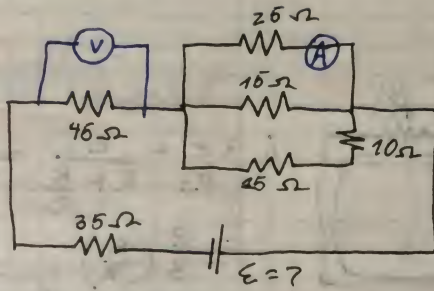 V
25 Ω
A
15 Ω
45 Ω
10 Ω
35 Ω
ε = ?